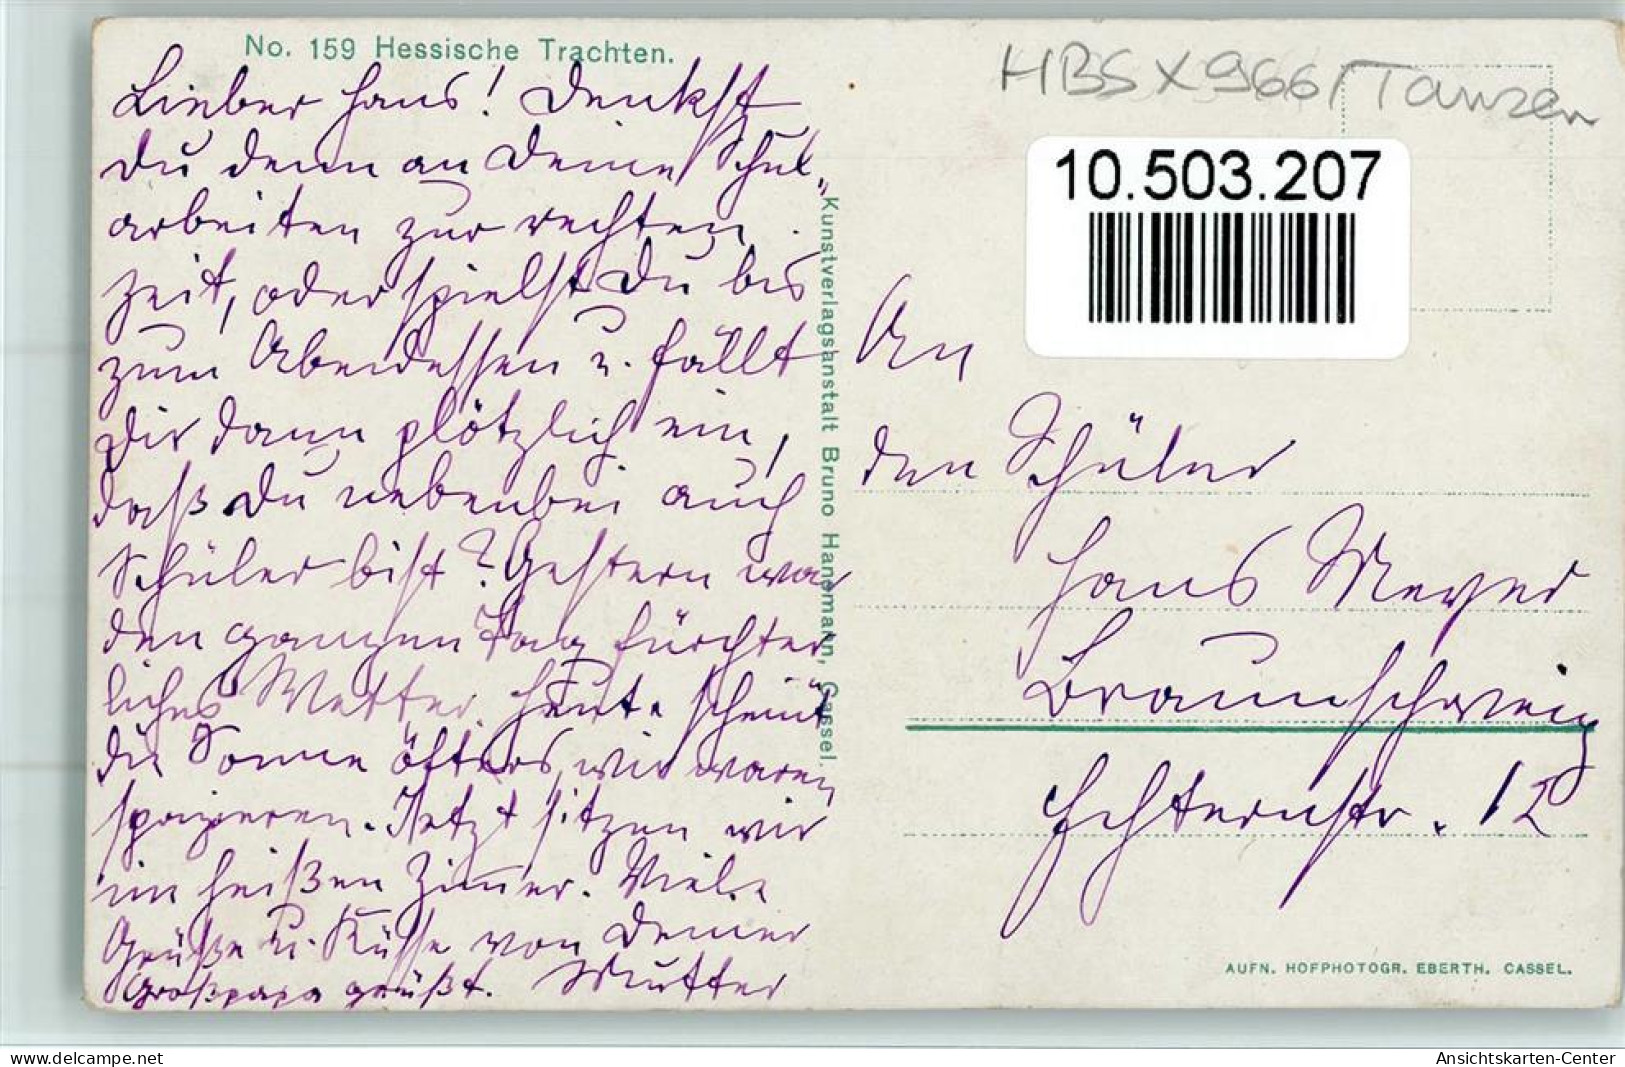 No. 159 Hessische Trachten.
Lieber Hans! Denkst
Du denn an Deine Schul-
arbeiten zur rechten
Zeit, oder spielst Du bis
zum Abendessen u. fällt
Dir dann plötzlich ein,
daß Du nebenbei auch
Schüler bist? Gestern war
den ganzen Tag fürchter
liches Wetter. Heute scheint
die Sonne öfters, wir waren
spazieren. Jetzt sitzen wir
im heißen Zimmer. Viele
Grüße u. Küsse von Deiner
Mutter
Großpapa grüßt.
Kunstverlagsanstalt Bruno Hansmann, Cassel.
HBS X 966 / Tanzen
10.503.207
An
den Schüler
Hans Meyer
Braunschweig
Echternstr. 12
AUFN. HOFPHOTOGR. EBERTH. CASSEL.
www.delcampe.net
Ansichtskarten-Center